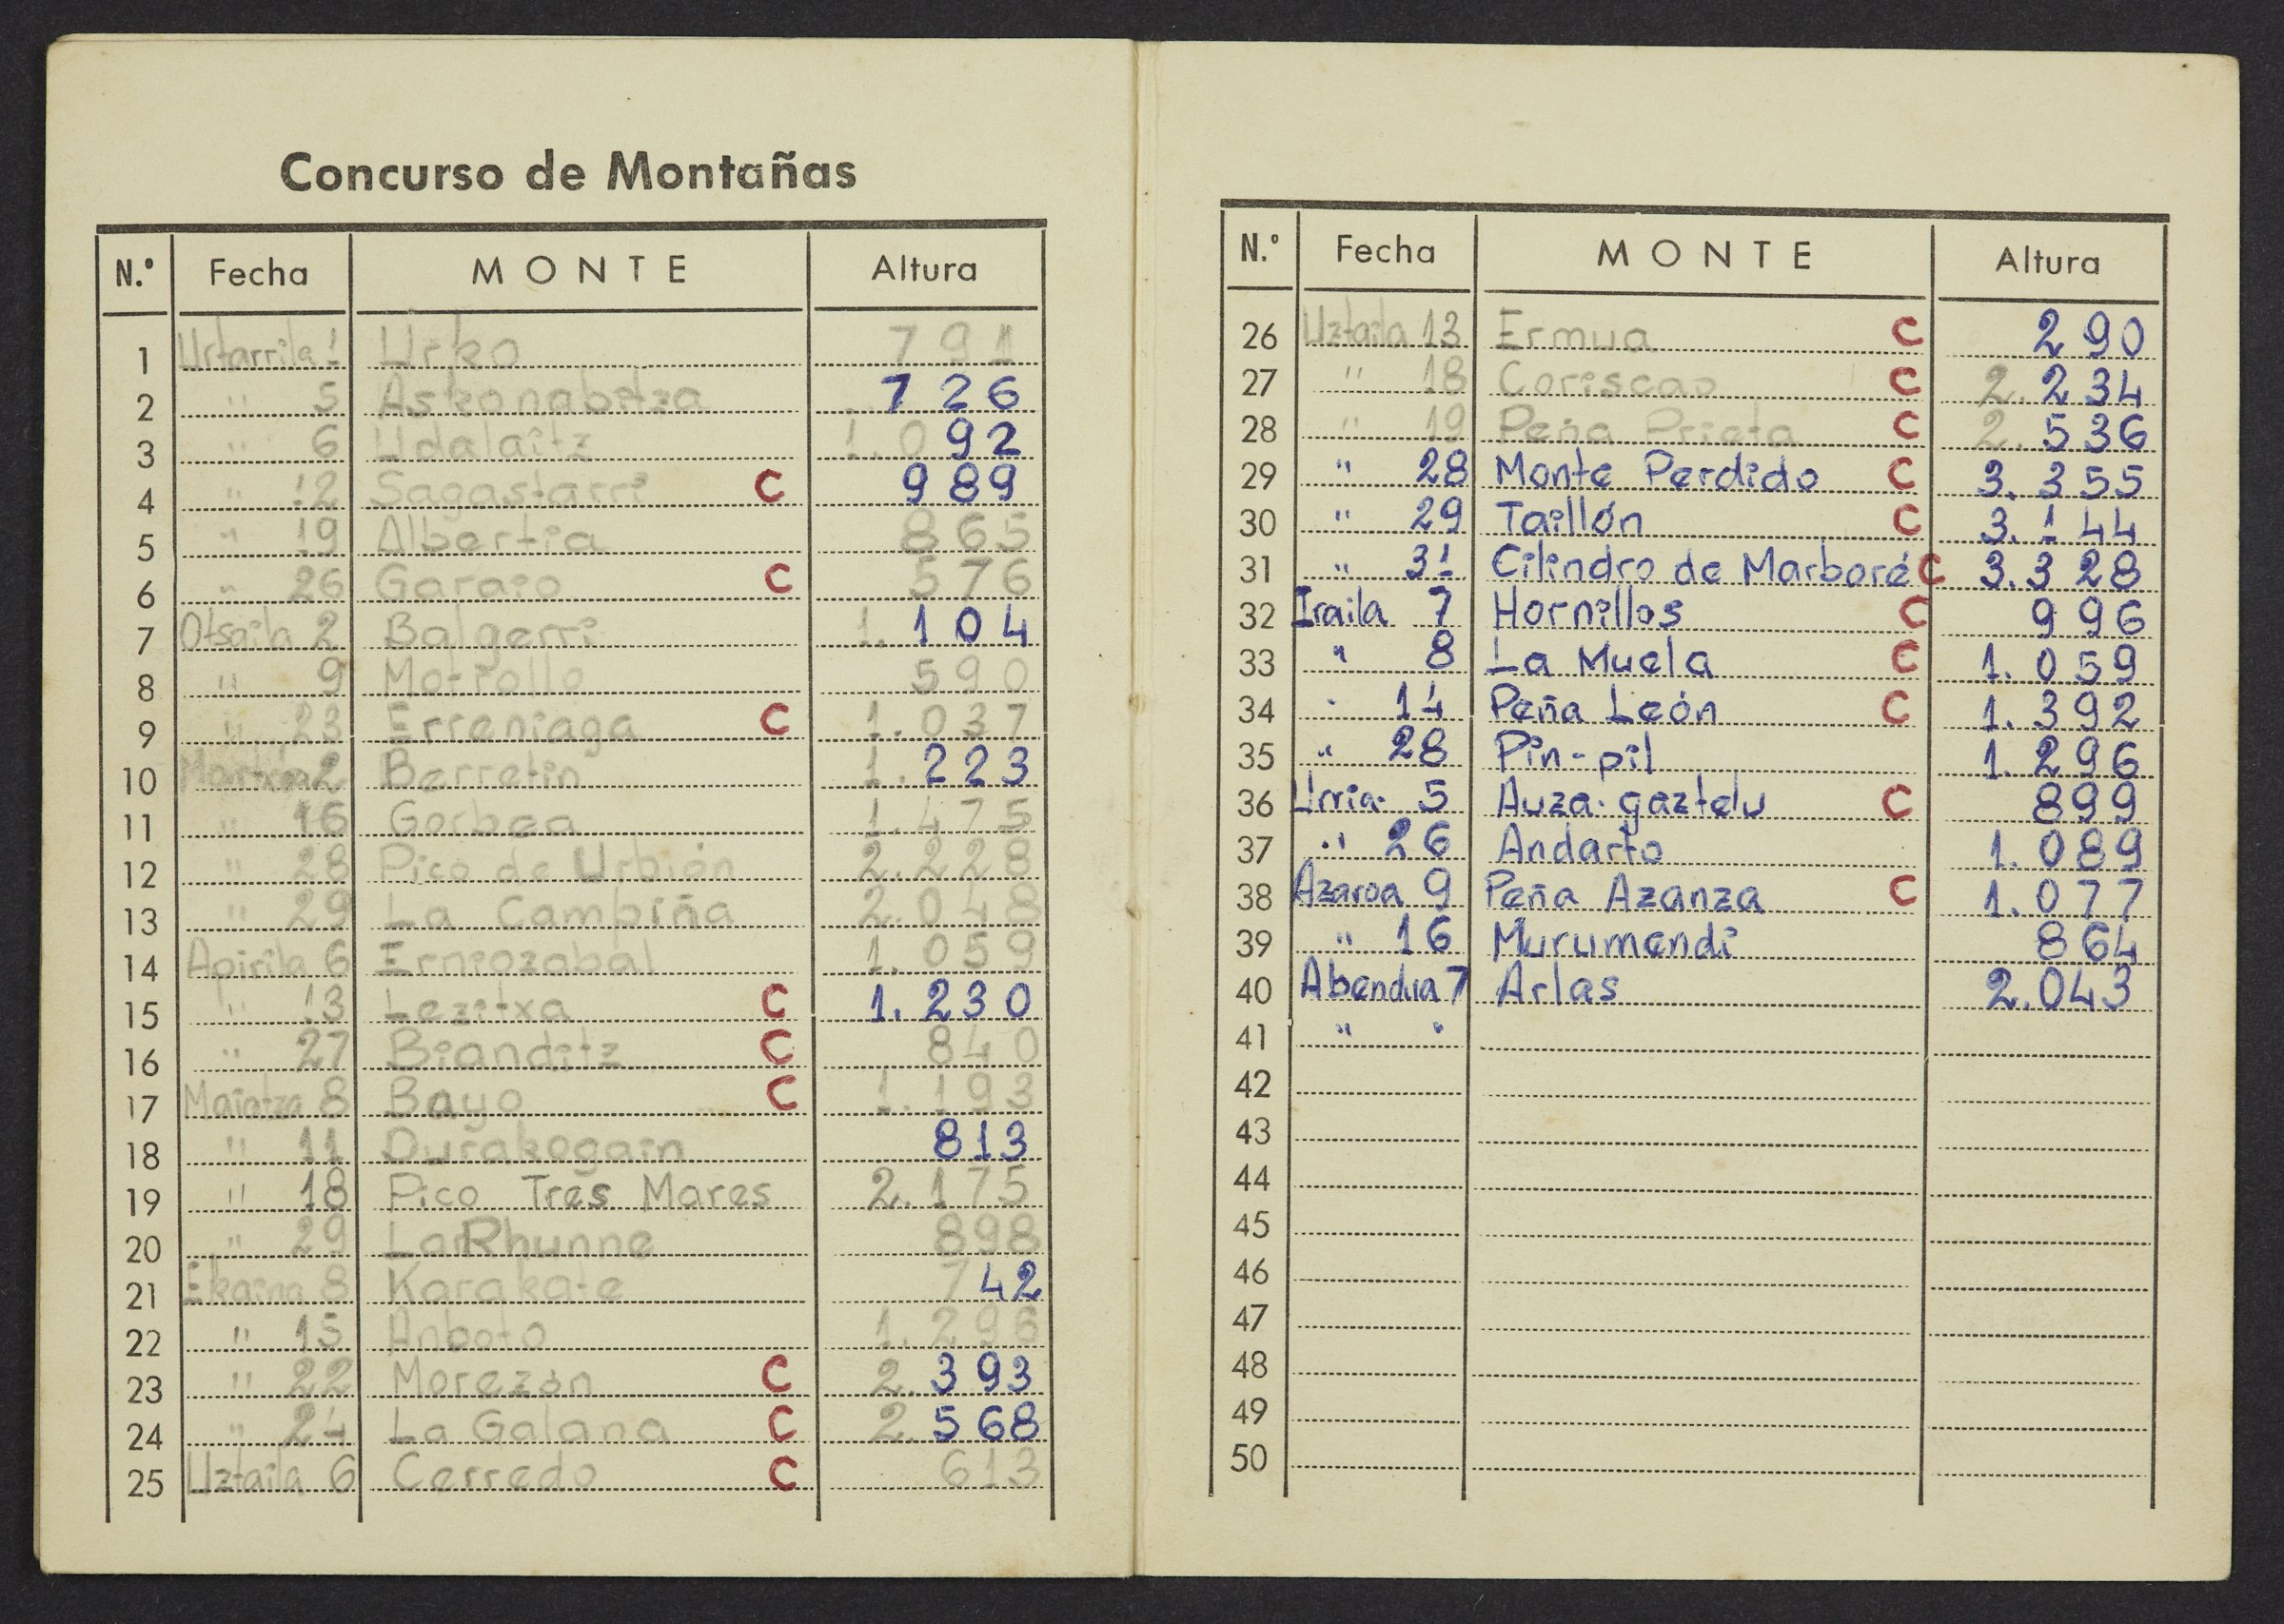 Concurso de Montañas
N.º Fecha MONTE Altura
1 Urtarrila 1 Urko 791
2 " 5 Askonabitza 726
3 " 6 Udalaitz 1.092
4 " 12 Sagastarri C 989
5 " 19 Albertia 865
6 " 26 Garaio C 576
7 Otsaila 2 Balgerri 1.104
8 " 9 Motrollo 590
9 " 23 Erreniaga C 1.037
10 Martxoa 2 Berretin 1.223
11 " 16 Gorbea 1.475
12 " 28 Pico de Urbión 2.228
13 " 29 La Campiña 2.048
14 Apirila 6 Erniozabal 1.059
15 " 13 Lezitxa C 1.230
16 " 27 Bianditz C 840
17 Maiatza 8 Bayo C 1.193
18 " 11 Durakogain 813
19 " 18 Pico Tres Mares 2.175
20 " 29 LaRhunne 898
21 Ekaina 8 Karakate 742
22 " 15 Anboto 1.296
23 " 22 Morezón C 2.393
24 " 24 La Galana C 2.568
25 Uztaila 6 Cerredo C 613
N.º Fecha MONTE Altura
26 Uztaila 13 Ermua C 290
27 " 18 Coriscao C 2.234
28 " 19 Peña Prieta C 2.536
29 " 28 Monte Perdido C 3.355
30 " 29 Taillón C 3.144
31 " 31 Cilindro de Marboré C 3.328
32 Iraila 7 Hornillos C 996
33 " 8 La Muela C 1.059
34 " 14 Peña León C 1.392
35 " 28 Pin-pil 1.296
36 Urria 5 Auza-gaztelu C 899
37 " 26 Andarto 1.089
38 Azaroa 9 Peña Azanza C 1.077
39 " 16 Murumendi 864
40 Abendua 7 Arlas 2.043
41 " "
42
43
44
45
46
47
48
49
50